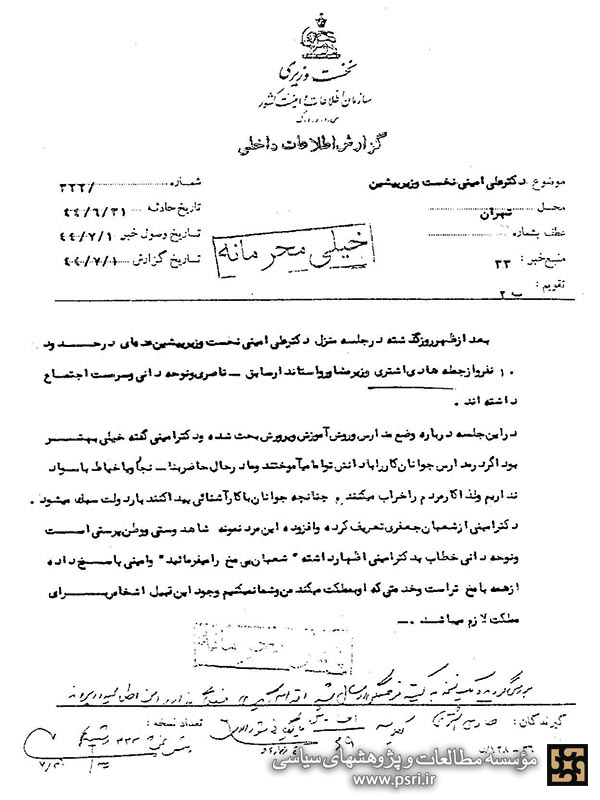 نخست وزیری
سازمان اطلاعات و امنیت کشور
س.ا.و.ا.ک
گزارش اطلاعات داخلی
موضوع : دکتر علی امینی نخست وزیر پیشین
شماره : ۳۲۲/
محل : تهران
تاریخ حادثه : ۴۴/۶/۳۱
عطف بشماره :
تاریخ وصول خبر : ۴۴/۷/۱
منبع خبر : ۳۳
تاریخ گزارش : ۴۴/۷/۱
تقویم : ب ۲
خیلی محرمانه
بعد از ظهر روز گذشته در جلسه منزل دکتر علی امینی نخست وزیر پیشین عده‌ای در حدود
۱۰ نفر و از جمله هادی اشتری وزیر مشاور و استاندار سابق - ناصری و نوحه دانی و سرمست اجتماع
داشته اند .
در این جلسه درباره وضع مدارس و روش آموزش و پرورش بحث شده و دکتر امینی گفته خیلی بهتر
بود اگر در مدارس جوانان کار را با دانش تواما میآموختند و ما در حال حاضر بنا - نجار و یا خیاط با سواد
نداریم ولذا کار مردم را خراب میکنند . چنانچه جوانان با کار آشنائی پیدا کنند بار دولت سبک میشود .
دکتر امینی از شعبان جعفری تعریف کرده و افزوده این مرد نمونه شاهدوستی و وطن پرستی است
و نوحه دانی خطاب بدکتر امینی اظهار داشته " شعبان بی مخ را میفرمائید " و امینی پاسخ داده
از همه با مخ تر است و خدمتی که او بمملکت میکند من و شما نمیکنیم وجود این قبیل اشخاص برای
مملکت لازم میباشد . -
گیرندگان :
تعداد نسخه :
مؤسسه مطالعات و پژوهشهای سیاسی
www.psri.ir